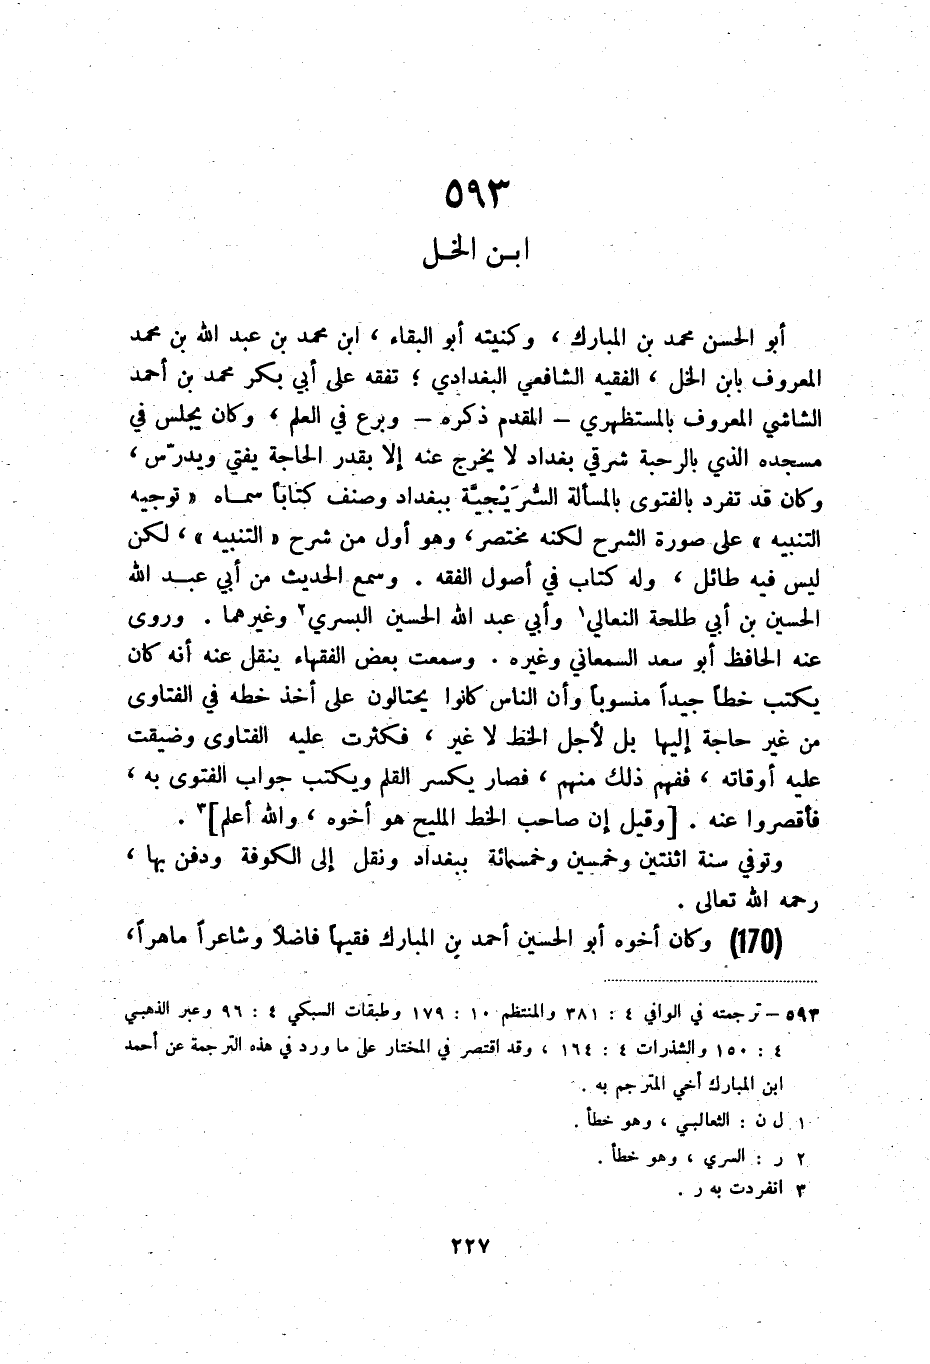 ٥٩٣
ابن الخل
أبو الحسن محمد بن المبارك ، وكنيته أبو البقاء ، ابن محمد بن عبد الله بن محمد
المعروف بابن الخل ، الفقيه الشافعي البغدادي ؛ تفقه على أبي بكر محمد بن أحمد
الشاشي المعروف بالمستظهري – المقدم ذكره – وبرع في العلم ، وكان يجلس في
مسجده الذي بالرحبة شرقي بغداد لا يخرج عنه إلا بقدر الحاجة يفتي ويدرّس ،
وكان قد تفرد بالفتوى بالمسألة السُّرَيْجيَّة ببغداد وصنف كتاباً سماه « توجيه
التنبيه » على صورة الشرح لكنه مختصر، وهو أول من شرح « التنبيه » ، لكن
ليس فيه طائل ، وله كتاب في أصول الفقه . وسمع الحديث من أبي عبد الله
الحسين بن أبي طلحة النعالي١ وأبي عبد الله الحسين البسري٢ وغيرهما . وروى
عنه الحافظ أبو سعد السمعاني وغيره . وسمعت بعض الفقهاء ينقل عنه أنه كان
يكتب خطاً جيداً منسوباً وأن الناس كانوا يحتالون على أخذ خطه في الفتاوى
من غير حاجة إليها بل لأجل الخط لا غير ، فكثرت عليه الفتاوى وضيقت
عليه أوقاته ، ففهم ذلك منهم ، فصار يكسر القلم ويكتب جواب الفتوى به ،
فأقصروا عنه . [وقيل إن صاحب الخط المليح هو أخوه ، والله أعلم]٣ .
وتوفي سنة اثنتين وخمسين وخمسمائة ببغداد ونقل إلى الكوفة ودفن بها ،
رحمه الله تعالى .
(170) وكان أخوه أبو الحسين أحمد بن المبارك فقيهاً فاضلاً وشاعراً ماهراً،
٥٩٣ – ترجمته في الوافي ٤ : ٣٨١ والمنتظم ١٠ : ١٧٩ وطبقات السبكي ٤ : ٩٦ وعبر الذهبي
٤ : ١٥٠ والشذرات ٤ : ١٦٤ ، وقد اقتصر في المختار على ما ورد في هذه الترجمة عن أحمد
ابن المبارك أخي المترجم به .
١ ل ن : الثعالبي ، وهو خطأ .
٢ ر : السري ، وهو خطأ .
٣ انفردت به ر .
٢٢٧